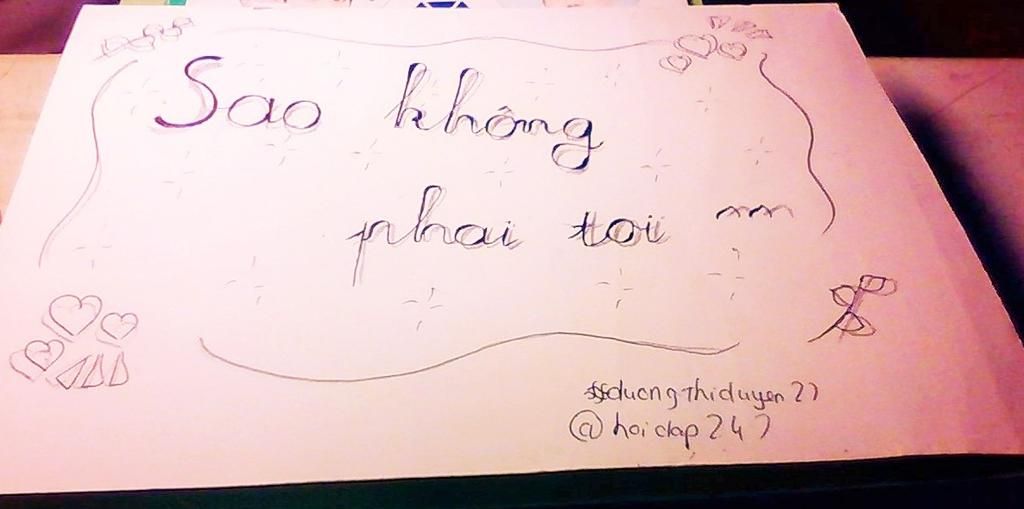 Sao không
phai toi
$$duongthiduyen27
@hoidap247